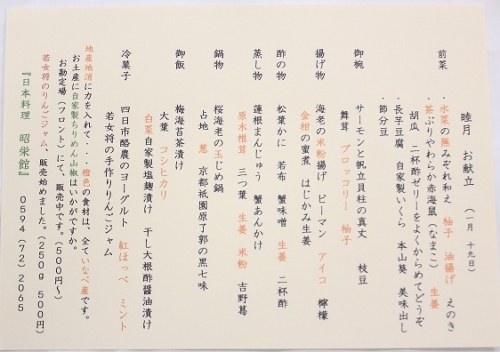 睦月 お献立 (一月 十九日)
前菜 ・水菜の蕪みぞれ和え 柚子 油揚げ えのき
・茶ぶりやわらか赤海鼠(なまこ) 生姜
胡瓜 二杯酢ゼリーをよくからめてどうぞ
・長芋豆腐 自家製いくら 本山葵 美味出し
・節分豆
御椀 サーモンと帆立貝柱の真丈 枝豆
舞茸 ブロッコリー 柚子
揚げ物 海老の米粉揚げ ピーマン アイコ 檸檬
金柑の蜜煮 はじかみ生姜
酢の物 松葉かに 若布 蟹味噌 生姜 二杯酢
蒸し物 蓮根まんじゅう 蟹あんかけ
原木椎茸 三つ葉 生姜 米粉 吉野葛
鍋物 桜海老の玉じめ鍋
占地 葱 京都祇園原了郭の黒七味
御飯 梅海苔茶漬け
大葉 コシヒカリ
白菜自家製塩麹漬け 干し大根酢醤油漬け
冷菓子 四日市酪農のヨーグルト 紅ほっぺ ミント
若女将の手作りりんごジャム
地産地消に力を入れて・・・橙色の食材は、全ていなべ産です。
お土産に自家製ちりめん山椒はいかがですか。
お勘定場(フロント)にて、販売中です。(500円)
若女将のりんごジャム、販売始めました。(250g 500円)
『日本料理 昭栄館』 0594(72)2065